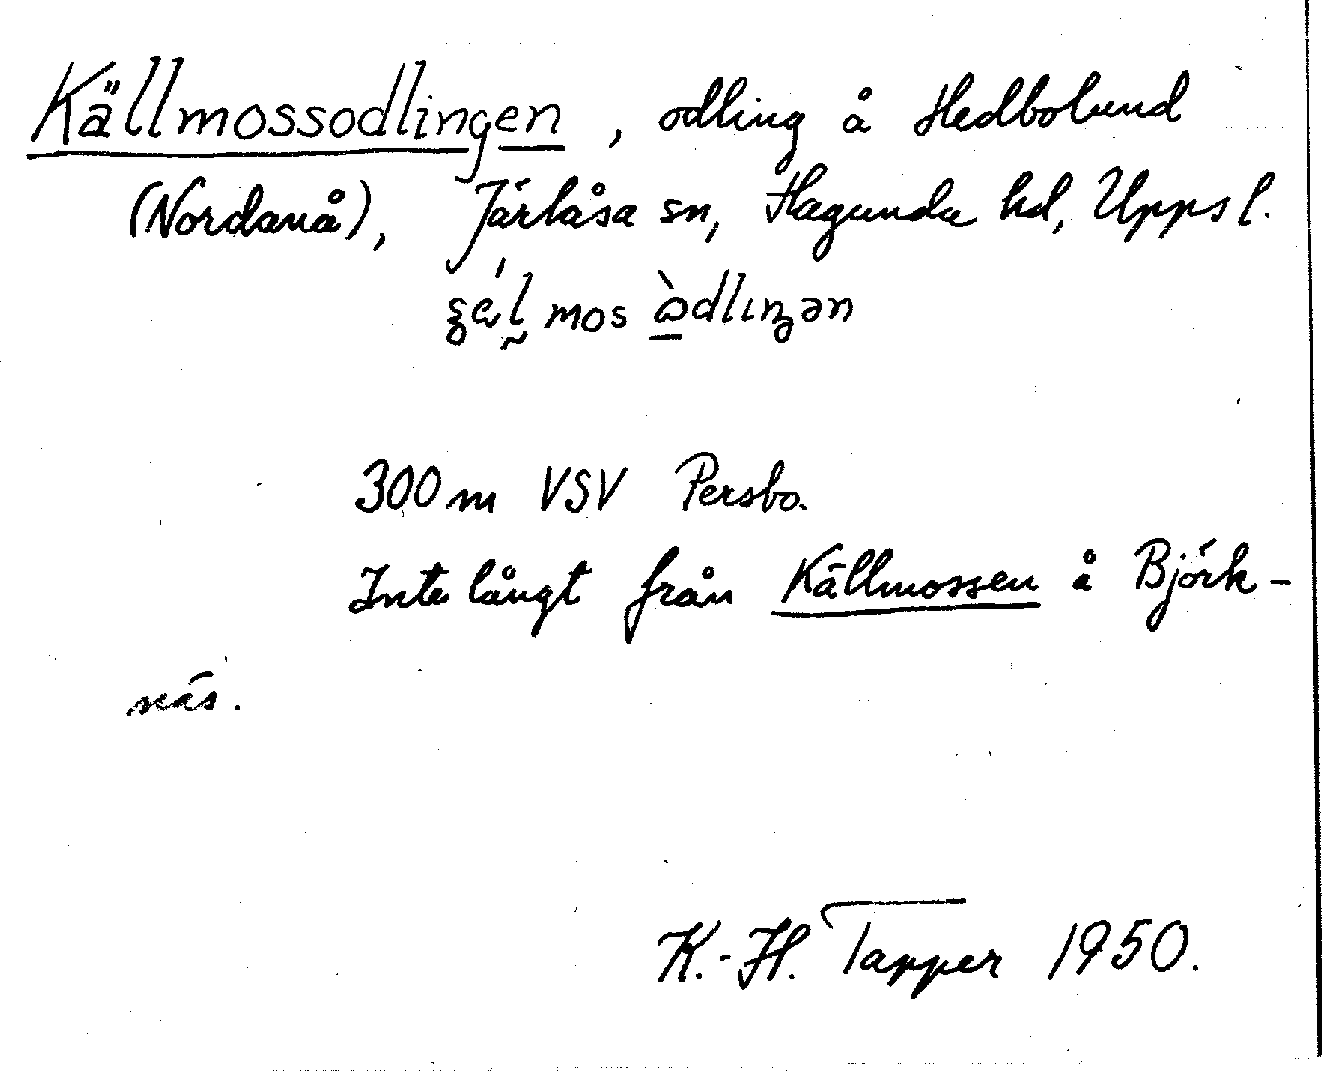 Källmossodlingen, odling å Hedbolund
(Nordanå), Järlåsa sn, Hagunda hd, Uppsl.
mos
300 m VSV Persbo.
Inte långt från Källmossen å Björk-
näs.
K.-H. Tapper 1950.